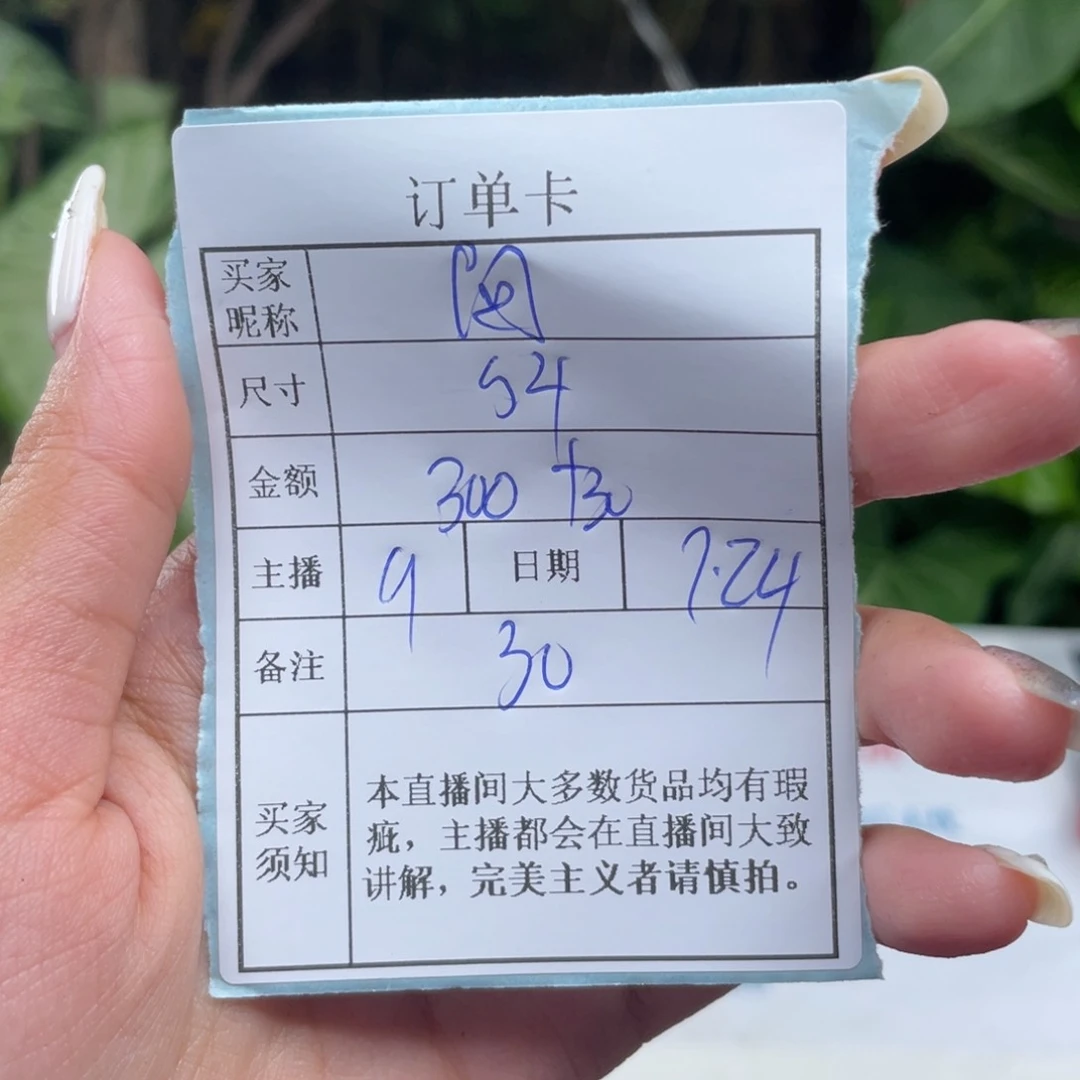 订单卡
买家
昵称
尺寸 54
金额 300 +30
主播 9 日期 7.24
备注 30
买家
须知
本直播间大多数货品均有瑕
疵，主播都会在直播间大致
讲解，完美主义者请慎拍。